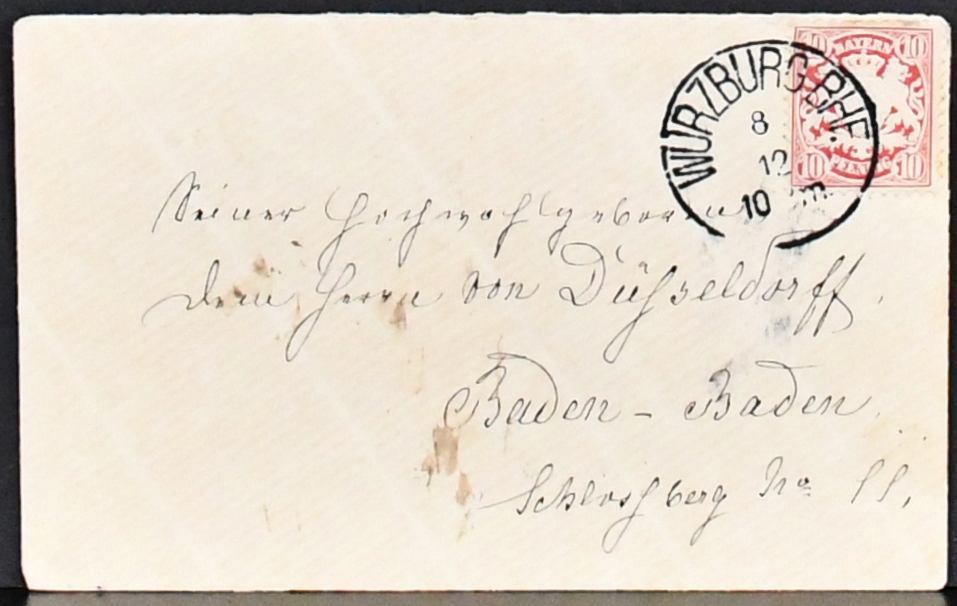 10 BAYERN 10
10 PFENNIG 10
WÜRZBURG BHF.
8
12
10 m.
Seiner Hochwohlgeboren
dem Herrn von Düsseldorff,
Baden - Baden.
Schlossberg No 11.